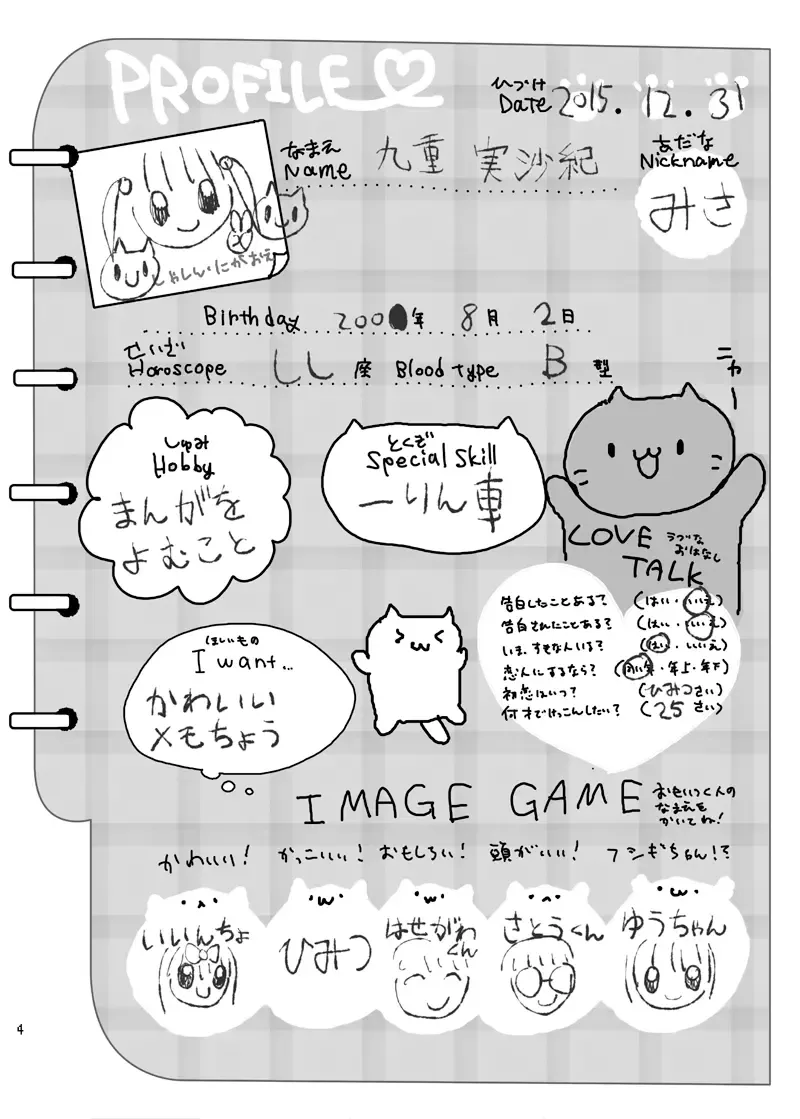 PROFILE
ひづけ
Date 2015. 12. 31
なまえ
Name 九重 実沙紀
あだな
Nickname
みさ
しゃしん・にがおえ
Birthday 200 年 8月 2日
せいざ
Horoscope しし座 Blood type B型
ニャー
しゅみ
Hobby
まんがを
よむこと
とくぎ
Special Skill
一りん車
LOVE
TALK
告白したことある? (はい・いいえ)
告白されたことある? (はい・いいえ)
いま、すきな人いる? (はい・いいえ)
恋人にするなら? (同い年・年上・年下)
初恋はいつ? (ひみつさい)
何才でけっこんしたい? (25さい)
ほしいもの
I want...
かわいい
メモちょう
IMAGE GAME
おもいつく人の
なまえを
かいてね!
かわいい! かっこいい! おもしろい! 頭がいい! フシギちゃん!?
いいんちょ ひみつ はせがわくん さとうくん ゆうちゃん
4